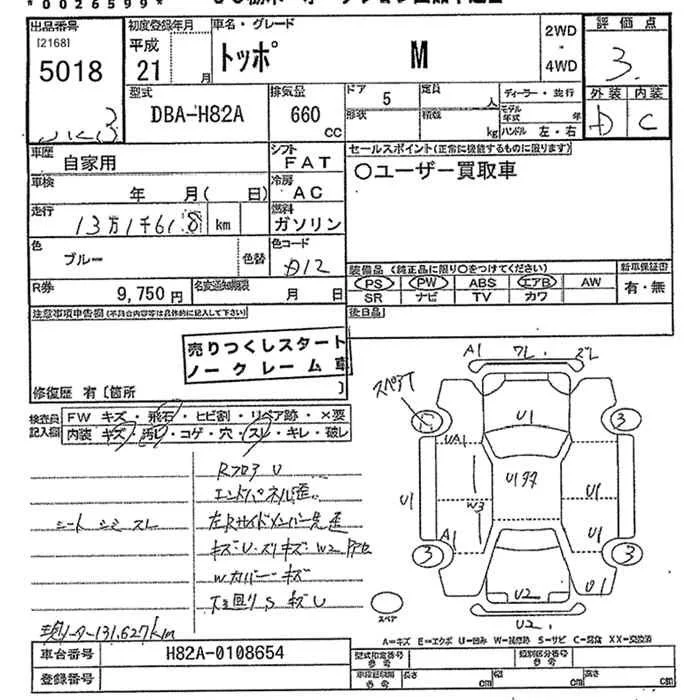 *0026599*
出品番号
[2168]
5018
初度登録年月
平成
21
月
車名・グレード
トッポ
M
2WD
・
4WD
評価点
3.
型式
DBA-H82A
排気量
660
CC
ドア
5
定員
人
形状
積載
kg
ディーラー・並行
モデル
年式
年
ハンドル 左・右
外装 内装
D C
車歴
自家用
シフト
FAT
車検
年 月( 日)
冷房
AC
走行
13万1千618
km
燃料
ガソリン
色
ブルー
色替
色コード
D12
R券
9,750円
名変通知期限
月 日
セールスポイント(正常に機能するものに限ります)
○ユーザー買取車
装備品(純正品に限り○をつけてください)
新車保証書
PS PW ABS エアB AW
SR ナビ TV カワ
有・無
注意事項申告欄(不具合内容等は具体的に記入して下さい)
後日品
売りつくしスタート
ノークレーム車
修復歴 有〔箇所 〕
検査員
記入欄
FW キズ・飛石・ヒビ割・リペア跡・×要
内装 キズ・汚レ・コゲ・穴・スレ・キレ・破レ
Rフロア U
エンドパネル歪
シート シミ スレ
左Rサイドメンバー先歪
キズ・U・スリキズ・W2
Wカバー キズ
下廻り S キズ U
現メーター131,627km
A1
スペアT
3
U1
UA1
U1
U1
W3
U1
A1
U1
3
3
U1
U2
U2.
スペア
A=キズ E=エクボ U=凹み W=補修跡 S=サビ C=腐食 XX=交換済
車台番号
H82A-0108654
登録番号
型式指定番号
参考
類別区分番号
参考
長さ
cm
幅
cm
高さ
cm